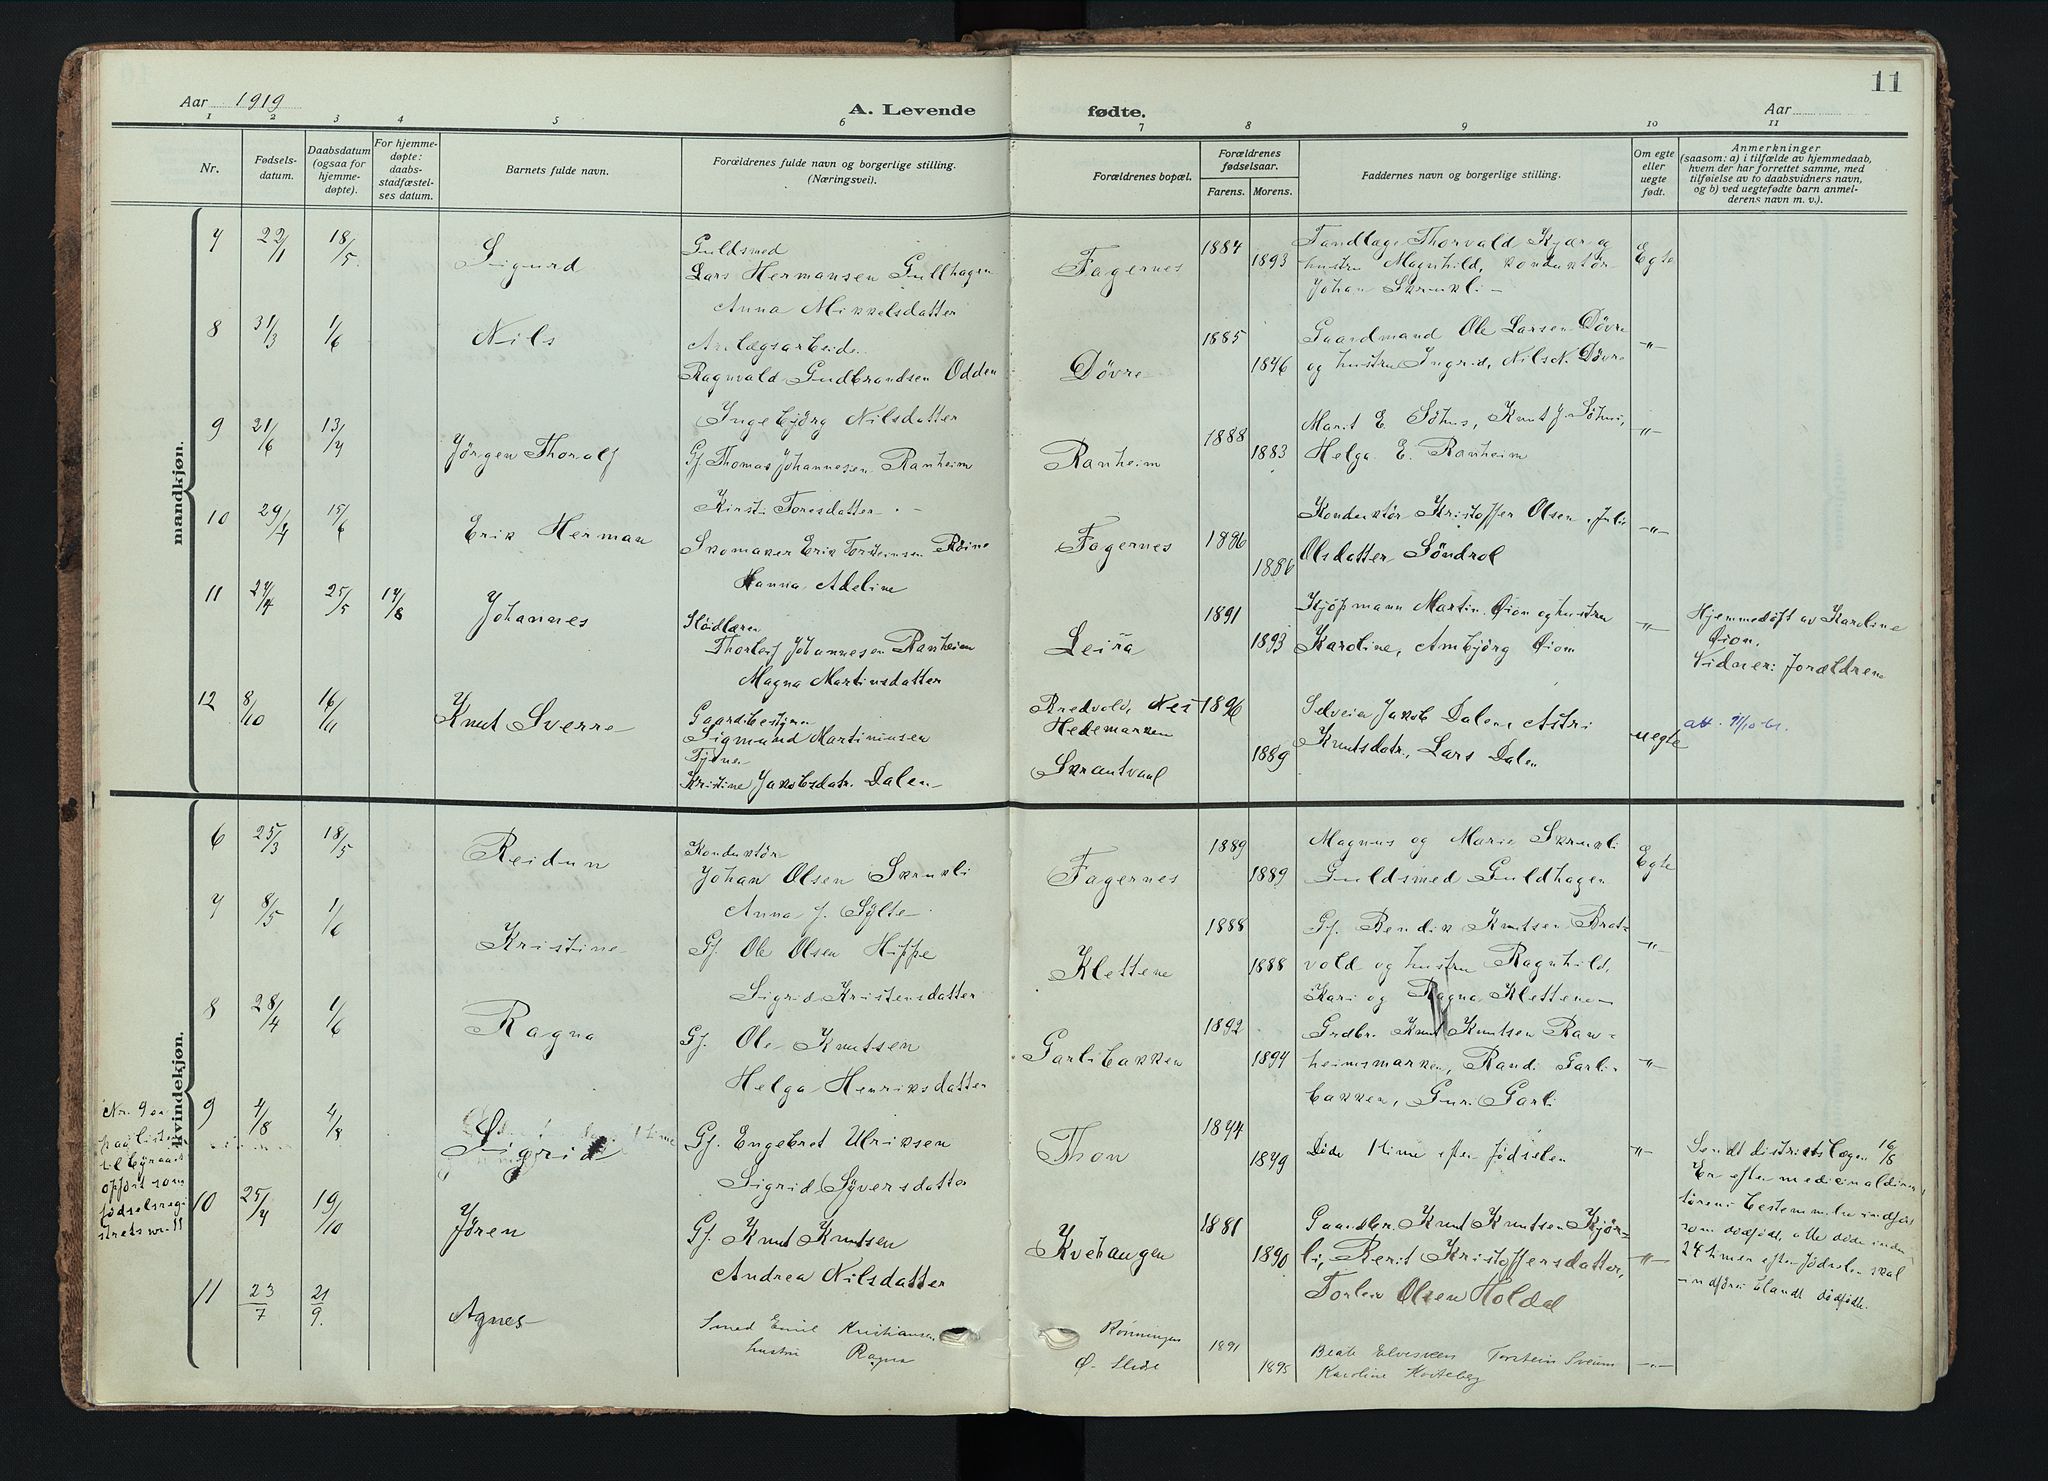 11
Aar 1919
A. Levende
fødte.
Aar
1 2 3 4 5 6 7 8 9 10 11
Nr.
Fødsels-
datum.
Daabsdatum
(ogsaa for
hjemme-
døpte).
For hjemme-
døpte:
daabs-
stadfæstel-
ses datum.
Barnets fulde navn.
Forældrenes fulde navn og borgerlige stilling.
(Næringsvei).
Forældrenes bopæl.
Forældrenes
fødselsaar.
Farens. Morens.
Faddernes navn og borgerlige stilling.
Om egte
eller
uegte
født.
Anmerkninger
(saasom: a) i tilfælde av hjemmedaab,
hvem der har forrettet samme, med
tilføielse av to daabsvidners navn,
og b) ved uegtefødte barn anmel-
derens navn m. v.).
mandkjøn.
7 22/1 18/5 Sigurd
Guldsmed
Lars Hermansen Gullhagen
Anna Mikkelsdatter
Fagernes 1884 1893
Tandlæge Thorvald Kjær og
hustru Magnhild, konduktør
Johan Skrukli
Egte
8 31/3 1/6 Nils
Anlægsarbeider
Ragnvald Gudbrandsen Odden
Ingebjörg Nilsdatter
Dövre 1885
Gaardmand Ole Larsen Dövre
og hustru Ingrid, Nils N. Dövre
-"-
9 21/6 13/7 Jörgen Thoralf
Gj Thomas Johannesen Ranheim
Kirsti Toresdatter
Ranheim 1888 1883
Marit E. Söhus, Knut J. Söhus,
Helga E. Ranheim
-"-
10 29/4 15/6 Erik Herman
Skomaker Erik Torsteinsen
Hanna Adeline
Fagernes 1886 1886
Konduktör Kristoffer Olsen, Julie
Olsdatter Söndrol
-"-
11 27/4 25/5 17/8 Johannes
Thorleif Johannesen Ranheim
Magna Martinsdatter
Leira 1891 1893
Kjöpmann Martin Öion og hustru
Karoline, Ambjörg Öion
-"-
Hjemmedöpt av Karoline
Öion.
Vidner: Forældrene
12 8/10 16/11 Knut Sverre
Gaardbestyrer
Sigmund Martiniusen
Tjener
Kristine Jakobsdatr. Dalen
Bredvold, Nes
Hedemarken
Skrautvaal
1896 1889
Selveier Jakob Dalen, Astri
Knutsdatr., Lars Dalen
uegte
att. 9/10-61.
kvindekjøn.
6 25/3 18/5 Reidun
Konduktör
Johan Olsen Skrukli
Anna J. Sylte
Fagernes 1889 1889
Magnus og Marie Skrukli
Guldsmed Guldhagen
Egte
7 8/5 1/6 Kristine
Gj. Ole Olsen Hippe
Sigrid Kristensdatter
Klettene 1888 1888
Gj. Bendik Knutsen Brot-
vold og hustru Ragnhild,
Kari og Ragna Klettene
-"-
8 28/4 1/6 Ragna
Gj. Ole Knutsen
Helga Henriksdatter
Garlibakken 1892 1894
Grdbr. Knut Knutsen Ran-
heimsmarken, Randi Garli-
bakken, Guri Garli
-"-
9 4/8 4/8 Sigrid
Gj. Engebret Ulriksen
Sigrid Syversdatter
Thon 1874 1879
Döde 1 time efter födselen
-"-
Sendt distriktslægen 16/8
Er efter medicinaldirek
törens bestemmelse indfört
som dödfödt, alle döde inden
24 timer efter födselen skal
indföres blandt dödfödte.
Nr. 9 er
paa listen
til byraaet
opfört som
fødselsregi
strets nr. 11
10 25/7 19/10 Jören
Gj. Knut Knutsen
Andrea Nilsdatter
Kvehaugen 1881 1890
Gaardbr. Knut Knutsen Kjör-
li, Berit Kristoffersdatter,
Olsen Holdal
-"-
11 23/7 21/9. Agnes
Smed Emil Kristiansen
hustru Ragna
Rönningen
Ø. Slidre
1891 1895
Beate Elvesveen Torstein Sveum
Karoline
-"-